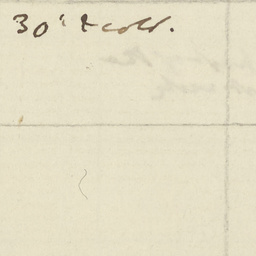 30' & cold.